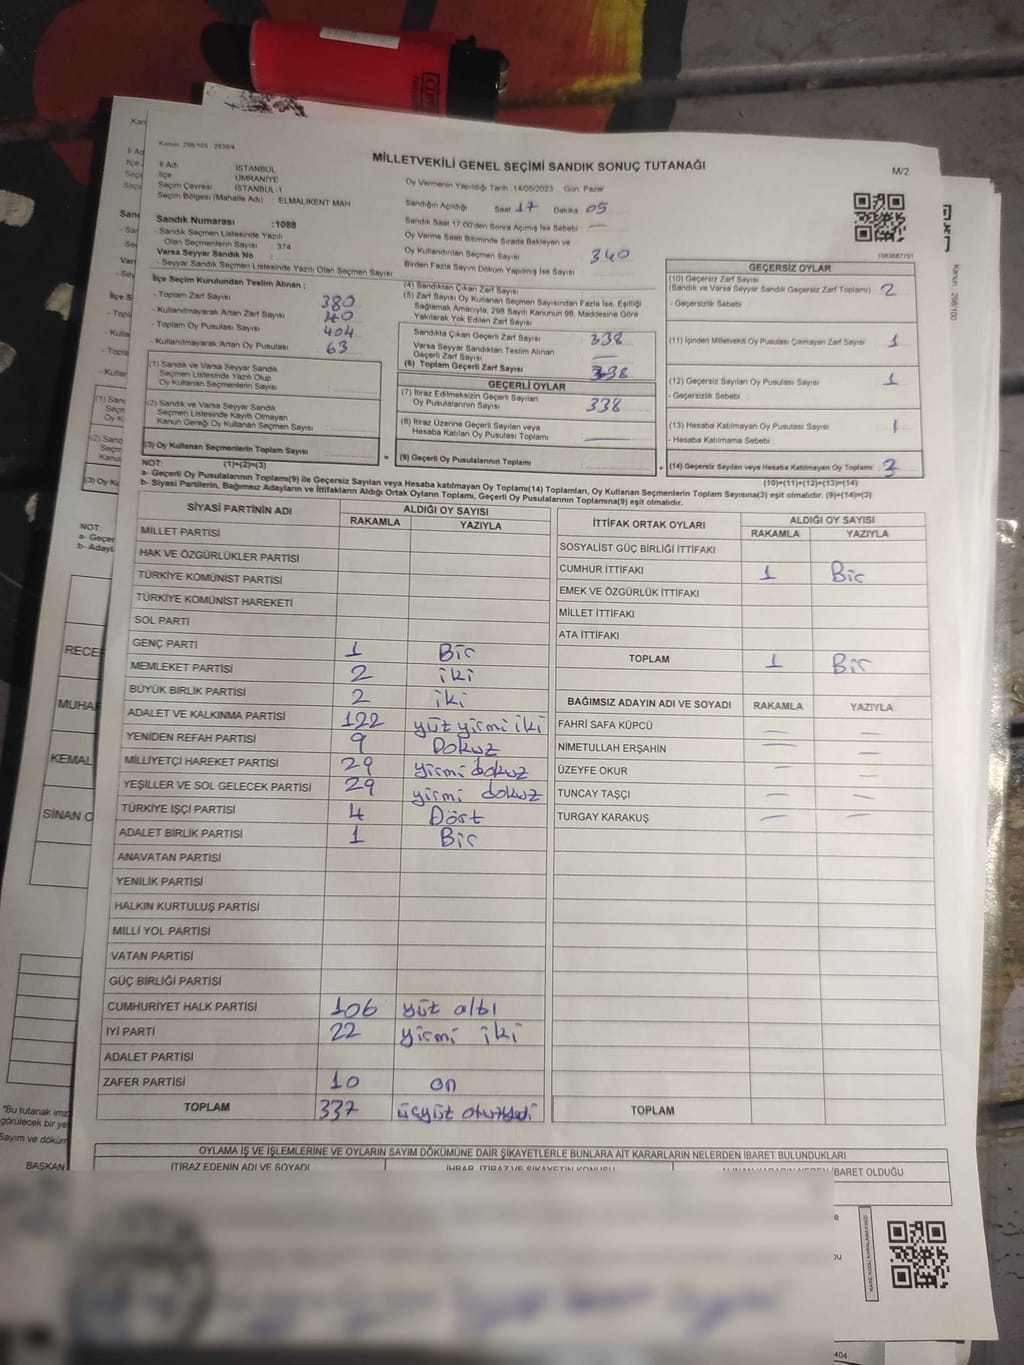 Kanun: 298/103 , 2839/4
MİLLETVEKİLİ GENEL SEÇİMİ SANDIK SONUÇ TUTANAĞI
M/2
İl Adı İSTANBUL
İlçe ÜMRANİYE
Seçim Çevresi İSTANBUL-1
Seçim Bölgesi (Mahalle Adı) ELMALIKENT MAH
Oy Vermenin Yapıldığı Tarih :14/05/2023 Gün: Pazar
Sandığın Açıldığı Saat 17 Dakika 05
Sandık Numarası :1088
- Sandık Seçmen Listesinde Yazılı
Olan Seçmenlerin Sayısı : 374
Varsa Seyyar Sandık No
- Seyyar Sandık Seçmen Listesinde Yazılı Olan Seçmen Sayısı
Sandık Saat 17.00'den Sonra Açılmış İse Sebebi : —
Oy Verme Saati Bitiminde Sırada Bekleyen ve
Oy Kullandırılan Seçmen Sayısı 340
Birden Fazla Sayım Döküm Yapılmış İse Sayısı
İlçe Seçim Kurulundan Teslim Alınan ;
- Toplam Zarf Sayısı 380
- Kullanılmayarak Artan Zarf Sayısı 40
- Toplam Oy Pusulası Sayısı 404
- Kullanılmayarak Artan Oy Pusulası 63
(1) Sandık ve Varsa Seyyar Sandık
Seçmen Listesinde Yazılı Olup
Oy Kullanan Seçmenlerin Sayısı
(2) Sandık ve Varsa Seyyar Sandık
Seçmen Listesinde Kayıtlı Olmayan
Kanun Gereği Oy Kullanan Seçmen Sayısı
(3) Oy Kullanan Seçmenlerin Toplam Sayısı
(4) Sandıktan Çıkan Zarf Sayısı
(5) Zarf Sayısı Oy Kullanan Seçmen Sayısından Fazla İse, Eşitliği
Sağlamak Amacıyla; 298 Sayılı Kanunun 98. Maddesine Göre
Yakılarak Yok Edilen Zarf Sayısı
Sandıkta Çıkan Geçerli Zarf Sayısı 338
Varsa Seyyar Sandıktan Teslim Alınan
Geçerli Zarf Sayısı —
(6) Toplam Geçerli Zarf Sayısı 338
GEÇERLİ OYLAR
(7) İtiraz Edilmeksizin Geçerli Sayılan
Oy Pusulalarının Sayısı 338
(8) İtiraz Üzerine Geçerli Sayılan veya
Hesaba Katılan Oy Pusulası Toplamı —
= (9) Geçerli Oy Pusulalarının Toplamı
1083687701
GEÇERSİZ OYLAR
(10) Geçersiz Zarf Sayısı
(Sandık ve Varsa Seyyar Sandık Geçersiz Zarf Toplamı) 2
- Geçersizlik Sebebi :
(11) İçinden Milletvekili Oy Pusulası Çıkmayan Zarf Sayısı 1
(12) Geçersiz Sayılan Oy Pusulası Sayısı 1
- Geçersizlik Sebebi
(13) Hesaba Katılmayan Oy Pusulası Sayısı 1
- Hesaba Katılmama Sebebi
+ (14) Geçersiz Sayılan veya Hesaba Katılmayan Oy Toplamı 3
NOT: (1)+(2)=(3)
(10)+(11)+(12)+(13)=(14)
a- Geçerli Oy Pusulalarının Toplamı(9) ile Geçersiz Sayılan veya Hesaba katılmayan Oy Toplamı(14) Toplamları, Oy Kullanan Seçmenlerin Toplam Sayısına(3) eşit olmalıdır. (9)+(14)=(3)
b- Siyasi Partilerin, Bağımsız Adayların ve İttifakların Aldığı Ortak Oyların Toplamı, Geçerli Oy Pusulalarının Toplamına(9) eşit olmalıdır.
SİYASİ PARTİNİN ADI ALDIĞI OY SAYISI
RAKAMLA YAZIYLA
MİLLET PARTİSİ
HAK VE ÖZGÜRLÜKLER PARTİSİ
TÜRKİYE KOMÜNİST PARTİSİ
TÜRKİYE KOMÜNİST HAREKETİ
SOL PARTİ
GENÇ PARTİ 1 Bir
MEMLEKET PARTİSİ 2 iki
BÜYÜK BİRLİK PARTİSİ 2 iki
ADALET VE KALKINMA PARTİSİ 122 yüz yirmi iki
YENİDEN REFAH PARTİSİ 9 Dokuz
MİLLİYETÇİ HAREKET PARTİSİ 29 yirmi dokuz
YEŞİLLER VE SOL GELECEK PARTİSİ 29 yirmi dokuz
TÜRKİYE İŞÇİ PARTİSİ 4 Dört
ADALET BİRLİK PARTİSİ 1 Bir
ANAVATAN PARTİSİ
YENİLİK PARTİSİ
HALKIN KURTULUŞ PARTİSİ
MİLLİ YOL PARTİSİ
VATAN PARTİSİ
GÜÇ BİRLİĞİ PARTİSİ
CUMHURİYET HALK PARTİSİ 106 yüz altı
İYİ PARTİ 22 yirmi iki
ADALET PARTİSİ
ZAFER PARTİSİ 10 on
TOPLAM 337 üçyüz otuzyedi
İTTİFAK ORTAK OYLARI ALDIĞI OY SAYISI
RAKAMLA YAZIYLA
SOSYALİST GÜÇ BİRLİĞİ İTTİFAKI
CUMHUR İTTİFAKI 1 Bir
EMEK VE ÖZGÜRLÜK İTTİFAKI
MİLLET İTTİFAKI
ATA İTTİFAKI
TOPLAM 1 Bir
BAĞIMSIZ ADAYIN ADI VE SOYADI RAKAMLA YAZIYLA
FAHRİ SAFA KÜPCÜ — —
NİMETULLAH ERŞAHİN — —
ÜZEYFE OKUR — —
TUNCAY TAŞÇI — —
TURGAY KARAKUŞ — —
TOPLAM
OYLAMA İŞ VE İŞLEMLERİNE VE OYLARIN SAYIM DÖKÜMÜNE DAİR ŞİKAYETLERLE BUNLARA AİT KARARLARIN NELERDEN İBARET BULUNDUKLARI
İTİRAZ EDENİN ADI VE SOYADI
İBARET OLDUĞU
RECE
MUHAR
KEMAL
SİNAN O
NOT:
a- Geçer
b- Adayl
*Bu tutanak imz
görülecek bir ye
Sayım ve döküm
BAŞKAN
Kanun : 298/100
404